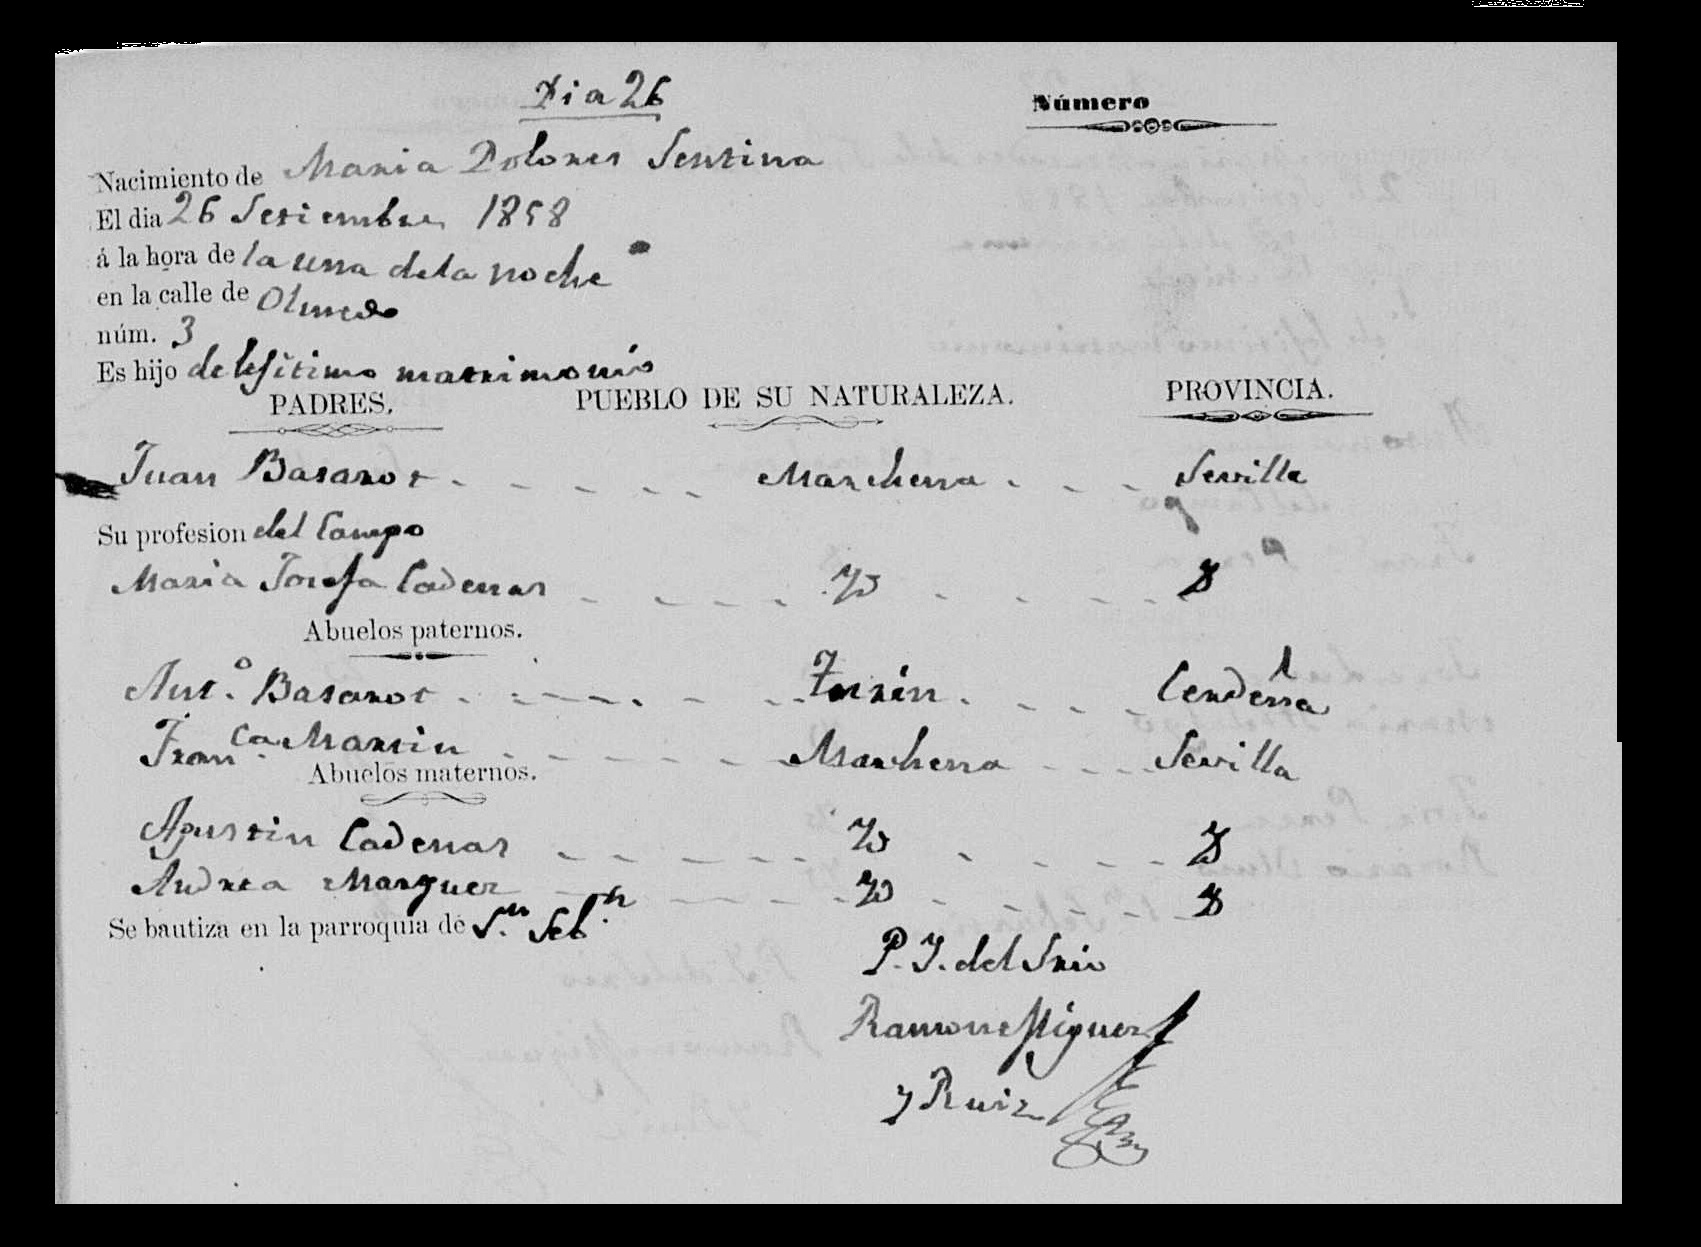 Dia 26
Número
Nacimiento de Maria Dolores Justina
El dia 26 Setiembre 1858
á la hora de la una de la noche
en la calle de Olmedo
núm. 3
Es hijo de lejitimo matrimonio
PADRES. PUEBLO DE SU NATURALEZA. PROVINCIA.
Juan Basarot Marchena Sevilla
Su profesion del Campo
Maria Josefa Cadenas Yd Yd
Abuelos paternos.
Ant.º Basarot Turin Cerdeña
Fran.ca Martin Marchena Sevilla
Abuelos maternos.
Agustin Cadenas Yd Yd
Andrea Marquez Yd Yd
Se bautiza en la parroquia de S.n Seb.n
P. Y. del Srio
Ramon Miguez
y Ruiz